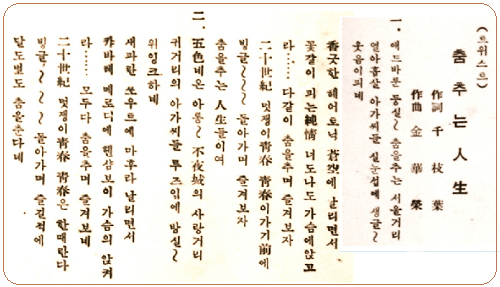 (트위스트)
춤추는 人生
作詞 千枝葉
作曲 金華榮
一、애드바룬 둥실~ 춤을추는 서울거리
열아홉살 아가씨들 실눈섭에 생글~
웃음이피네
香긋한 헤어로닉 蒼空에 날리면서
꽃같이 피는純情 너도나도 가슴에안고
라‥‥‥ 다같이 춤을추며 즐겨보자
二十世紀 멋쟁이靑春 靑春이가기前에
빙글~~~ 돌아가며 즐겨보자
춤을추는 人生들이여
二、五色네온 아롱~ 不夜城의 사랑거리
귀거리의 아가씨들 루즈입에 방실~
위잉크하네
새파란 쏘우트에 마후라 날리면서
캬바레 메로디에 헨섬보이 가슴의 안겨
라‥‥‥ 모두다 춤을추며 즐겨보네
二十世紀 멋쟁이靑春 靑春은 한때란다
빙글~~~ 돌아가며 즐길적에
달도별도 춤을춘다네